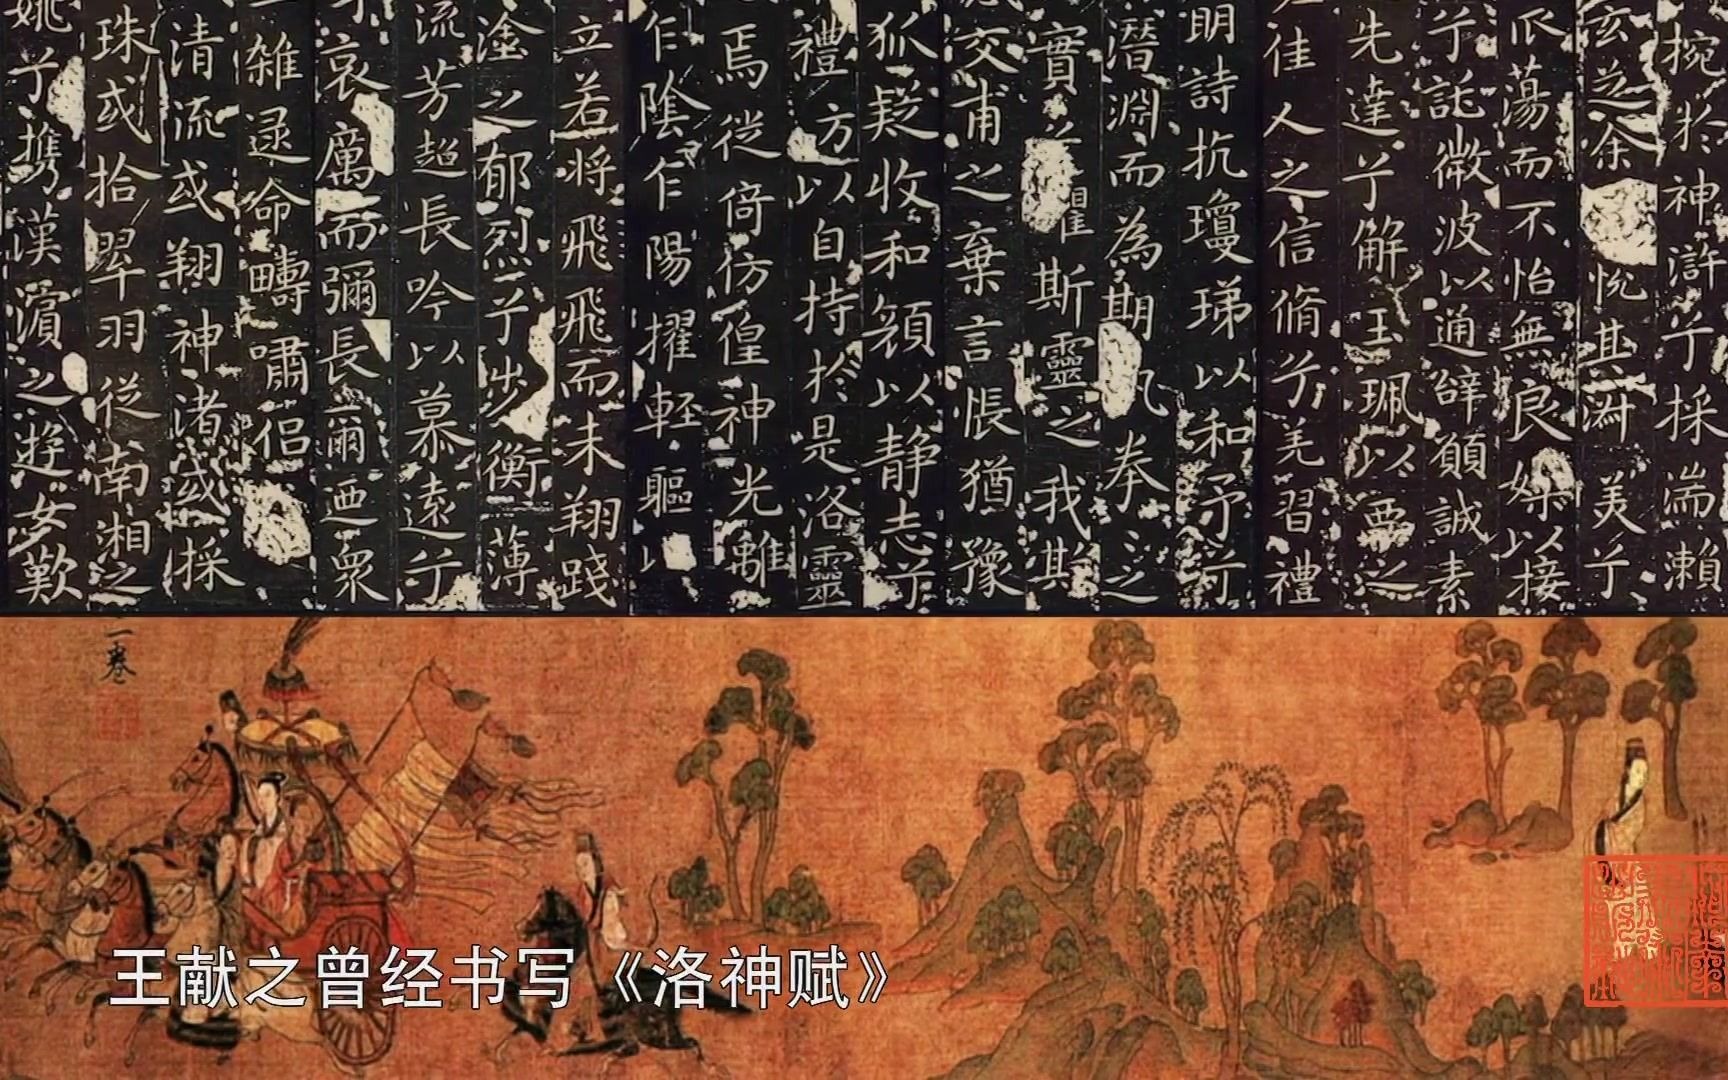 捥於神滸兮採湍瀨
玄芝余悅其淑美兮
蕩而不怡無良媒以接
兮託微波以通辝願誠素
先達兮解玉珮以要之
佳人之信脩兮羌習禮
明詩抗瓊珶以和予兮
潛淵而為期執拳〻之
實懼斯靈之我欺
交甫之棄言悵猶豫
狐疑收和顏以静志兮
禮方以自持於是洛靈
焉徙倚仿偟神光離
乍陰乍陽擢輕軀以
立若將飛飛而未翔踐
塗之郁烈兮步衡薄
流芳超長吟以慕遠兮
哀厲而彌長爾迺衆
雜遝命疇嘯侶
清流或翔神渚或採
珠或拾翠羽從南湘之
兮攜漢濱之遊女歎
一卷
王献之曾经书写《洛神赋》